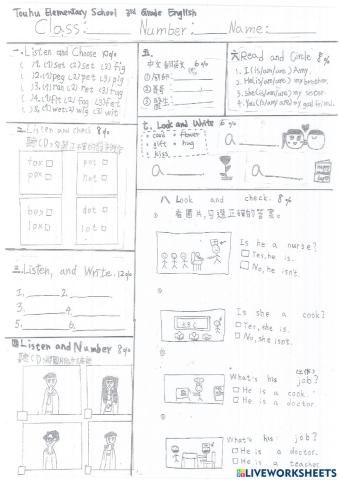 Touhu Elementary School 3rd Grade English
Class: Number: Name:
一、Listen and Choose 10%
( )1. (1) set (2) set (3) fig
( )2. (1) peg (2) pet (3) pig
( )3. (1) ran (2) net (3) rug
( )4. (1) fit (2) fog (3) fet
( )5. (1) wet (2) wig (3) wit
二、Listen and check 8%
fox □
pox □
pot □
not □
box □
lox □
dot □
lot □
三、Listen, and Write. 12%
1. 2.
3. 4.
5. 6.
四 Listen and Number 8%
五、
中文翻英文 6%
① 廚師:
② 護士:
③ 醫生:
六 Read and Circle 8%
1. I (is/am/are) Amy.
2. He (is/am/are) my brother.
3. She (is/am/are) my sister.
4. You (is/am/are) my good friend.
七、Look and Write 6%
• card • flower
• gift • hug
• kiss
a
a
a
八 Look and check. 8%
看圖片,勾選正確的答案。
Is he a nurse?
□ Yes, he is.
□ No, he isn't.
Is she a cook?
□ Yes, she is.
□ No, she isn't.
(工作)
What's his job?
□ He is a cook.
□ He is a doctor.
What's his job?
□ He is a doctor.
□ He is a teacher.
LIVEWORKSHEETS